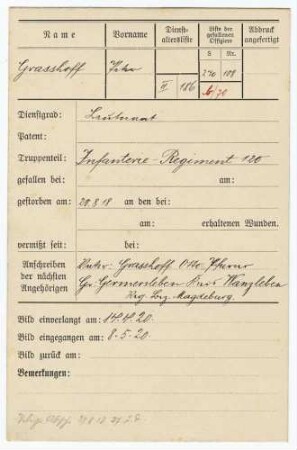 Name Vorname Dienst-altersliste Liste der gefallenen Offiziere Abdruck angefertigt
S Nr.
Grasshoff Peter II 186 270 109
6/70
Dienstgrad: Leutnant
Patent:
Truppenteil: Infanterie-Regiment 120
gefallen bei: am:
gestorben am: 20.8.18 an den bei:
am: erhaltenen Wunden.
vermißt seit: bei:
Anschreiben der nächsten Angehörigen
Vater: Grasshoff Otto Pfarrer
Gr. Germersleben Wanzleben
Reg. Bez. Magdeburg.
Bild einverlangt am: 14.4.20.
Bild eingegangen am: 8.5.20
Bild zurück am:
Bemerkungen: